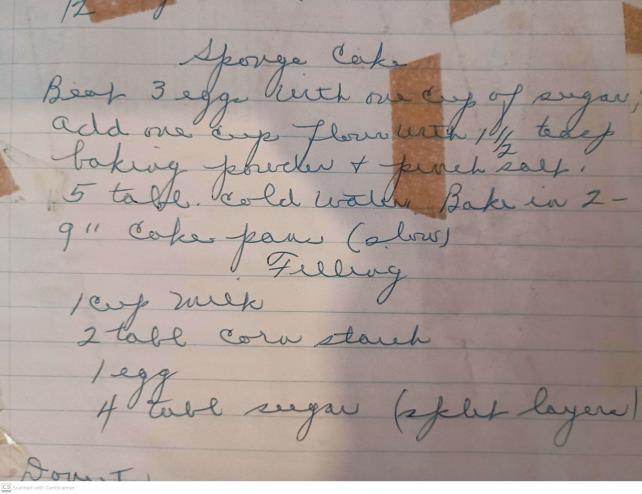 12
Sponge Cake
Beat 3 eggs with one cup of sugar,
add one cup flour with 1 1/2 teasp
baking powder + pinch salt.
5 tabl. cold water. Bake in 2 -
9" cake pans (slow)
Filling
1 cup milk
2 tabl corn starch
1 egg
4 tabl sugar (split layers)
CS Scanned with CamScanner